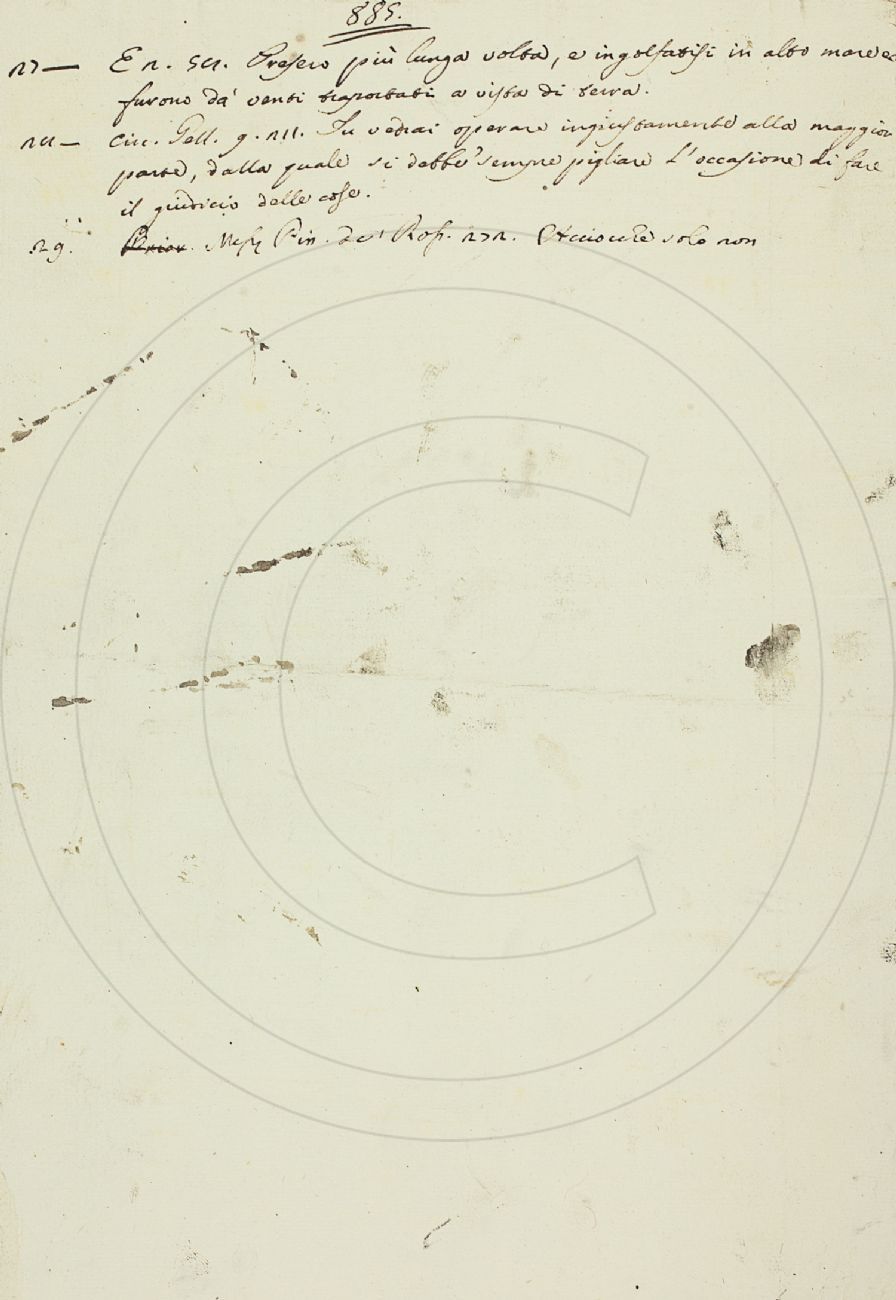 885.
27 — E 2. 521. Presero più lunga volta, e ingolfatisi in alto mare
furono da' venti trasportati a vista di terra.
Circ. Gell. 9. 211. Tu vedrai operare ingiustamente alla maggior
parte, dalla quale si debbe sempre pigliare l'occasione di fare
il giudicio delle cose.
29. Prior. Mess Pin. de' Ross. 272. Acciocchè solo non